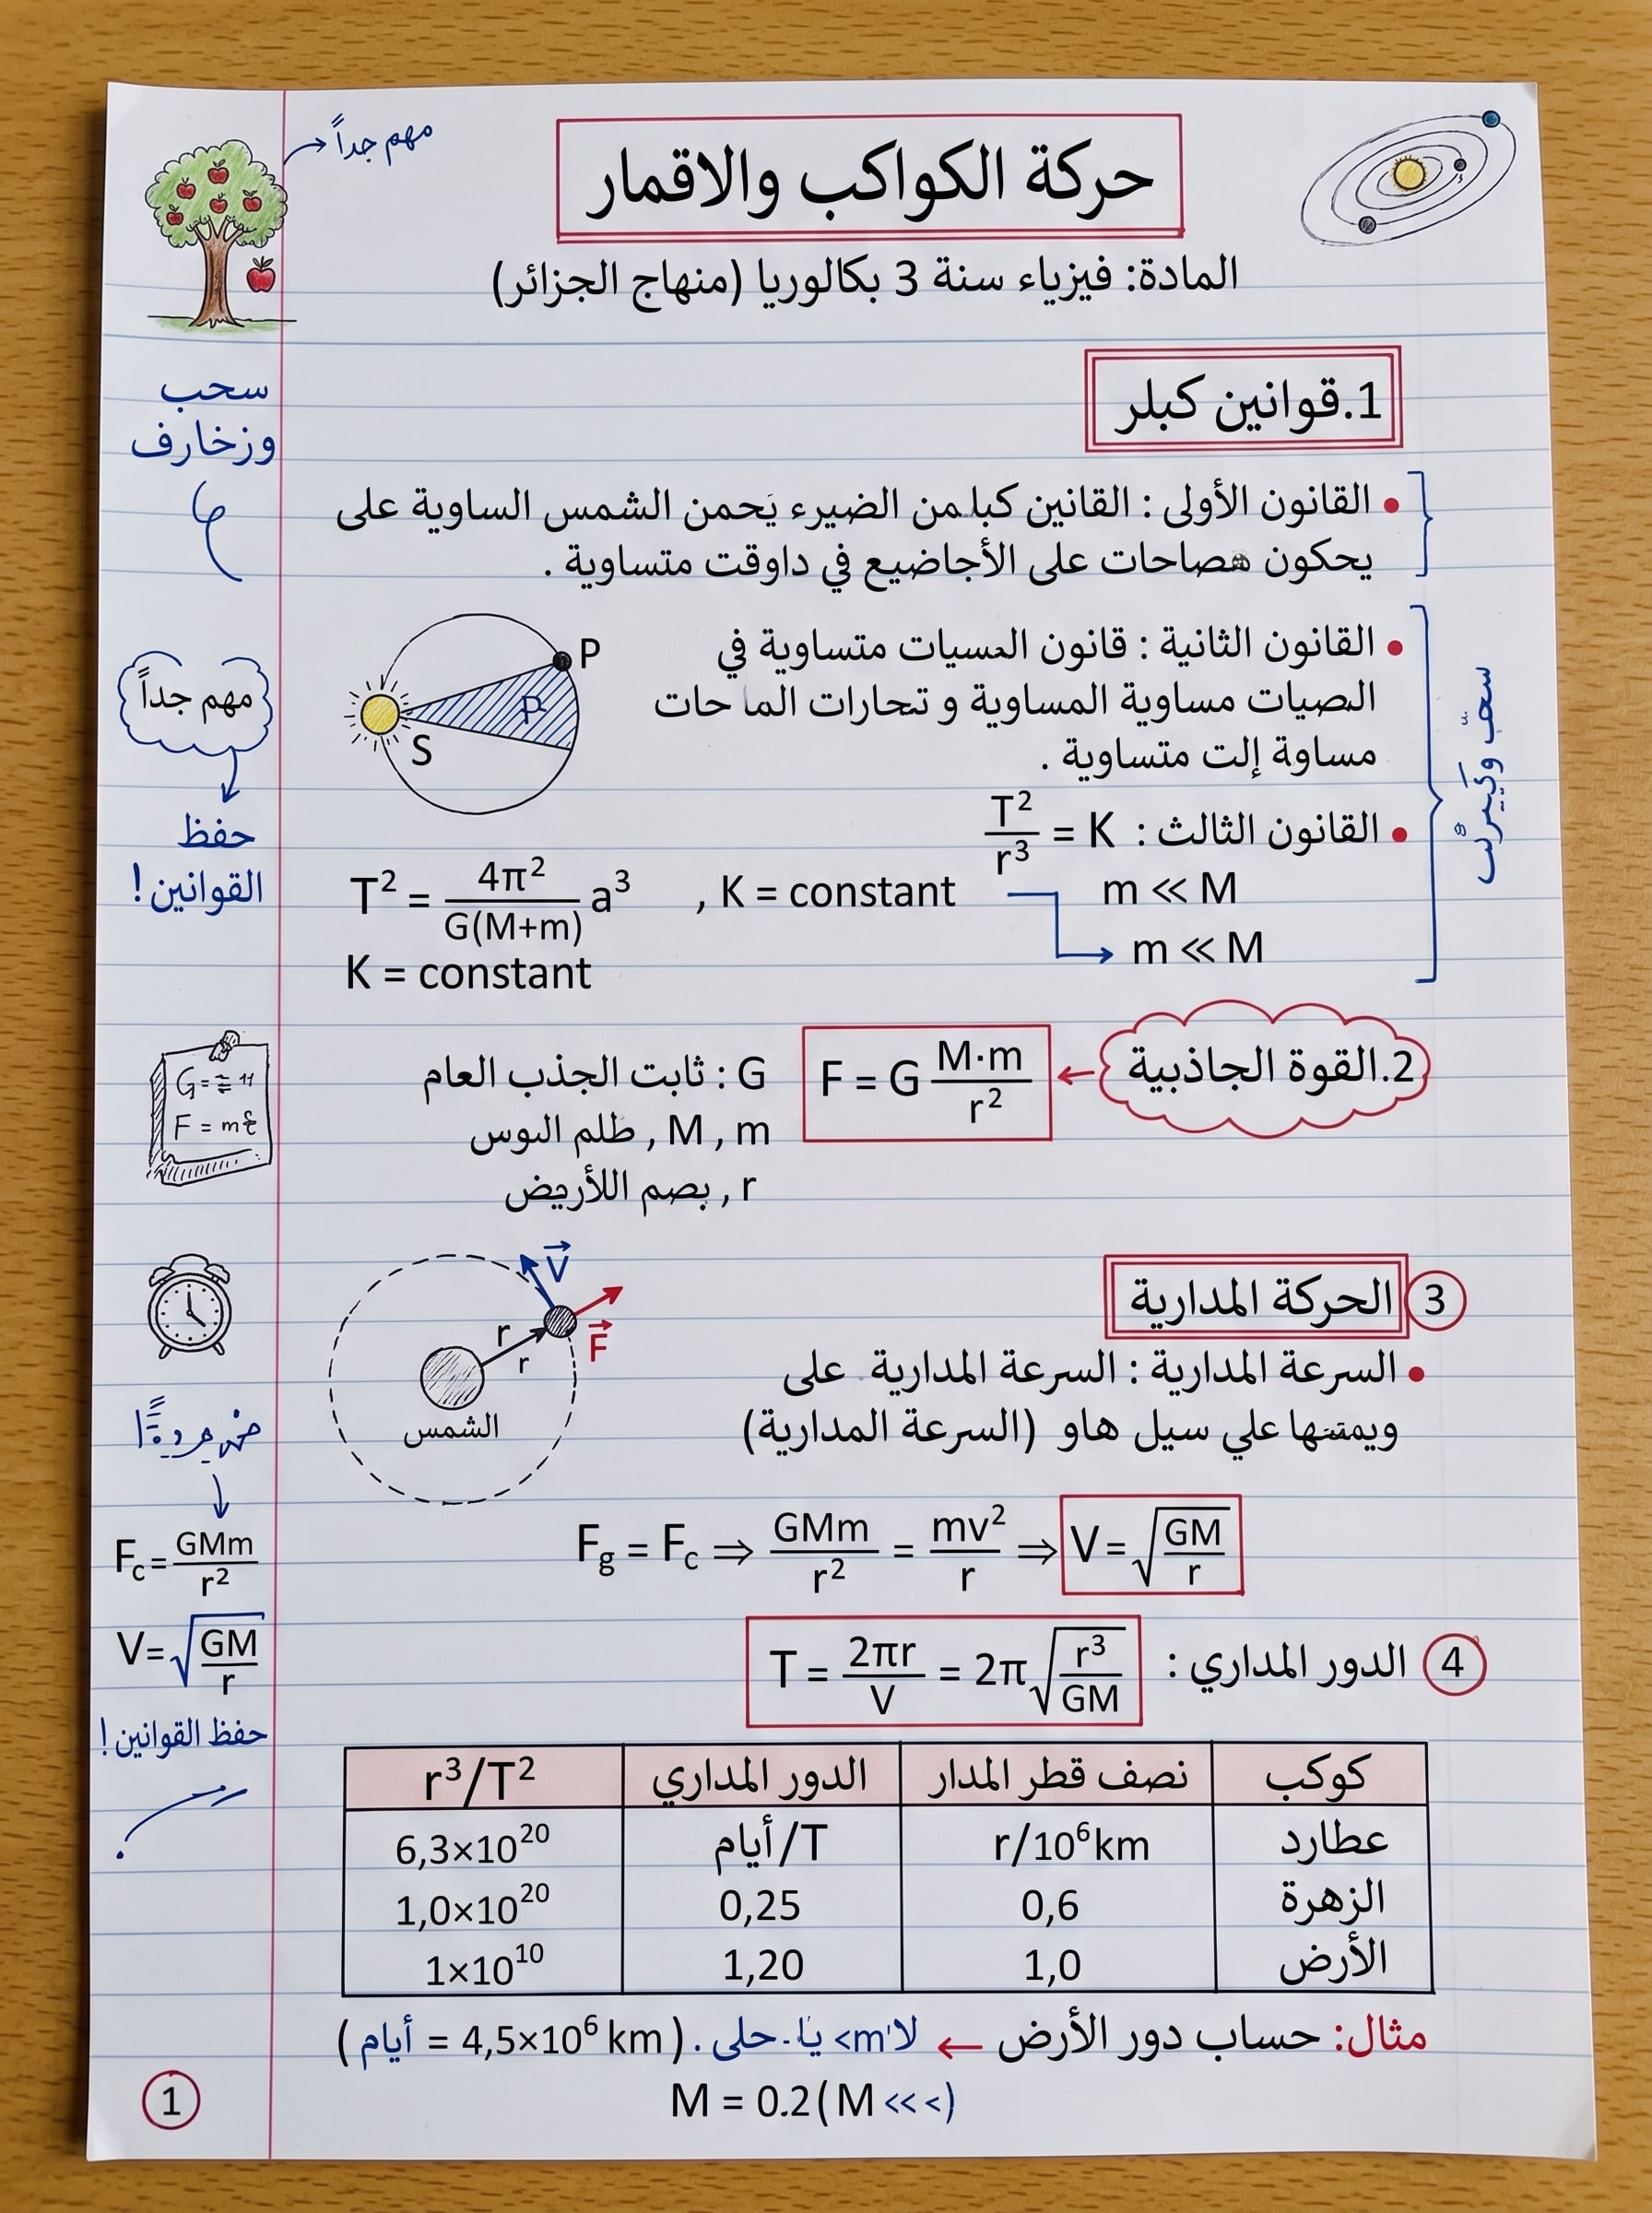 حركة الكواكب والاقمار
مهم جداً
المادة: فيزياء سنة 3 بكالوريا (منهاج الجزائر)
1.قوانين كبلر
سحب
وزخارف
القانون الأولى : القانين كبلمن الضيرء يَحمن الشمس الساوية على
يحكون هصاحات على الأجاضيع في داوقت متساوية .
القانون الثانية : قانون المسيات متساوية في
الصيات مساوية المساوية و تحارات الما حات
مساوة إلت متساوية .
P
P
S
مهم جداً
حفظ
القوانين!
القانون الثالث : T²/r³ = K
T² = 4π²/G(M+m) a³ , K = constant
m ≪ M
m ≪ M
K = constant
2.القوة الجاذبية
F = G M·m/r²
G : ثابت الجذب العام
m , M , طلم البوس
r , بصم اللأرىض
3 الحركة المدارية
V
F
r
r
الشمس
السرعة المدارية : السرعة المدارية على
علي سيل هاو (السرعة المدارية)
Fg = Fc ⇒ GMm/r² = mv²/r ⇒ V = √(GM/r)
Fc = GMm/r²
V = √(GM/r)
حفظ القوانين!
4 الدور المداري : T = 2πr/V = 2π√(r³/GM)
كوكب نصف قطر المدار الدور المداري r³/T²
عطارد r/10⁶km أيام/T 6,3×10²⁰
الزهرة 0,6 0,25 1,0×10²⁰
الأرض 1,0 1,20 1×10¹⁰
مثال: حساب دور الأرض ← حلى . (4,5×10⁶ km = أيام)
M = 0.2(M <<<)
1